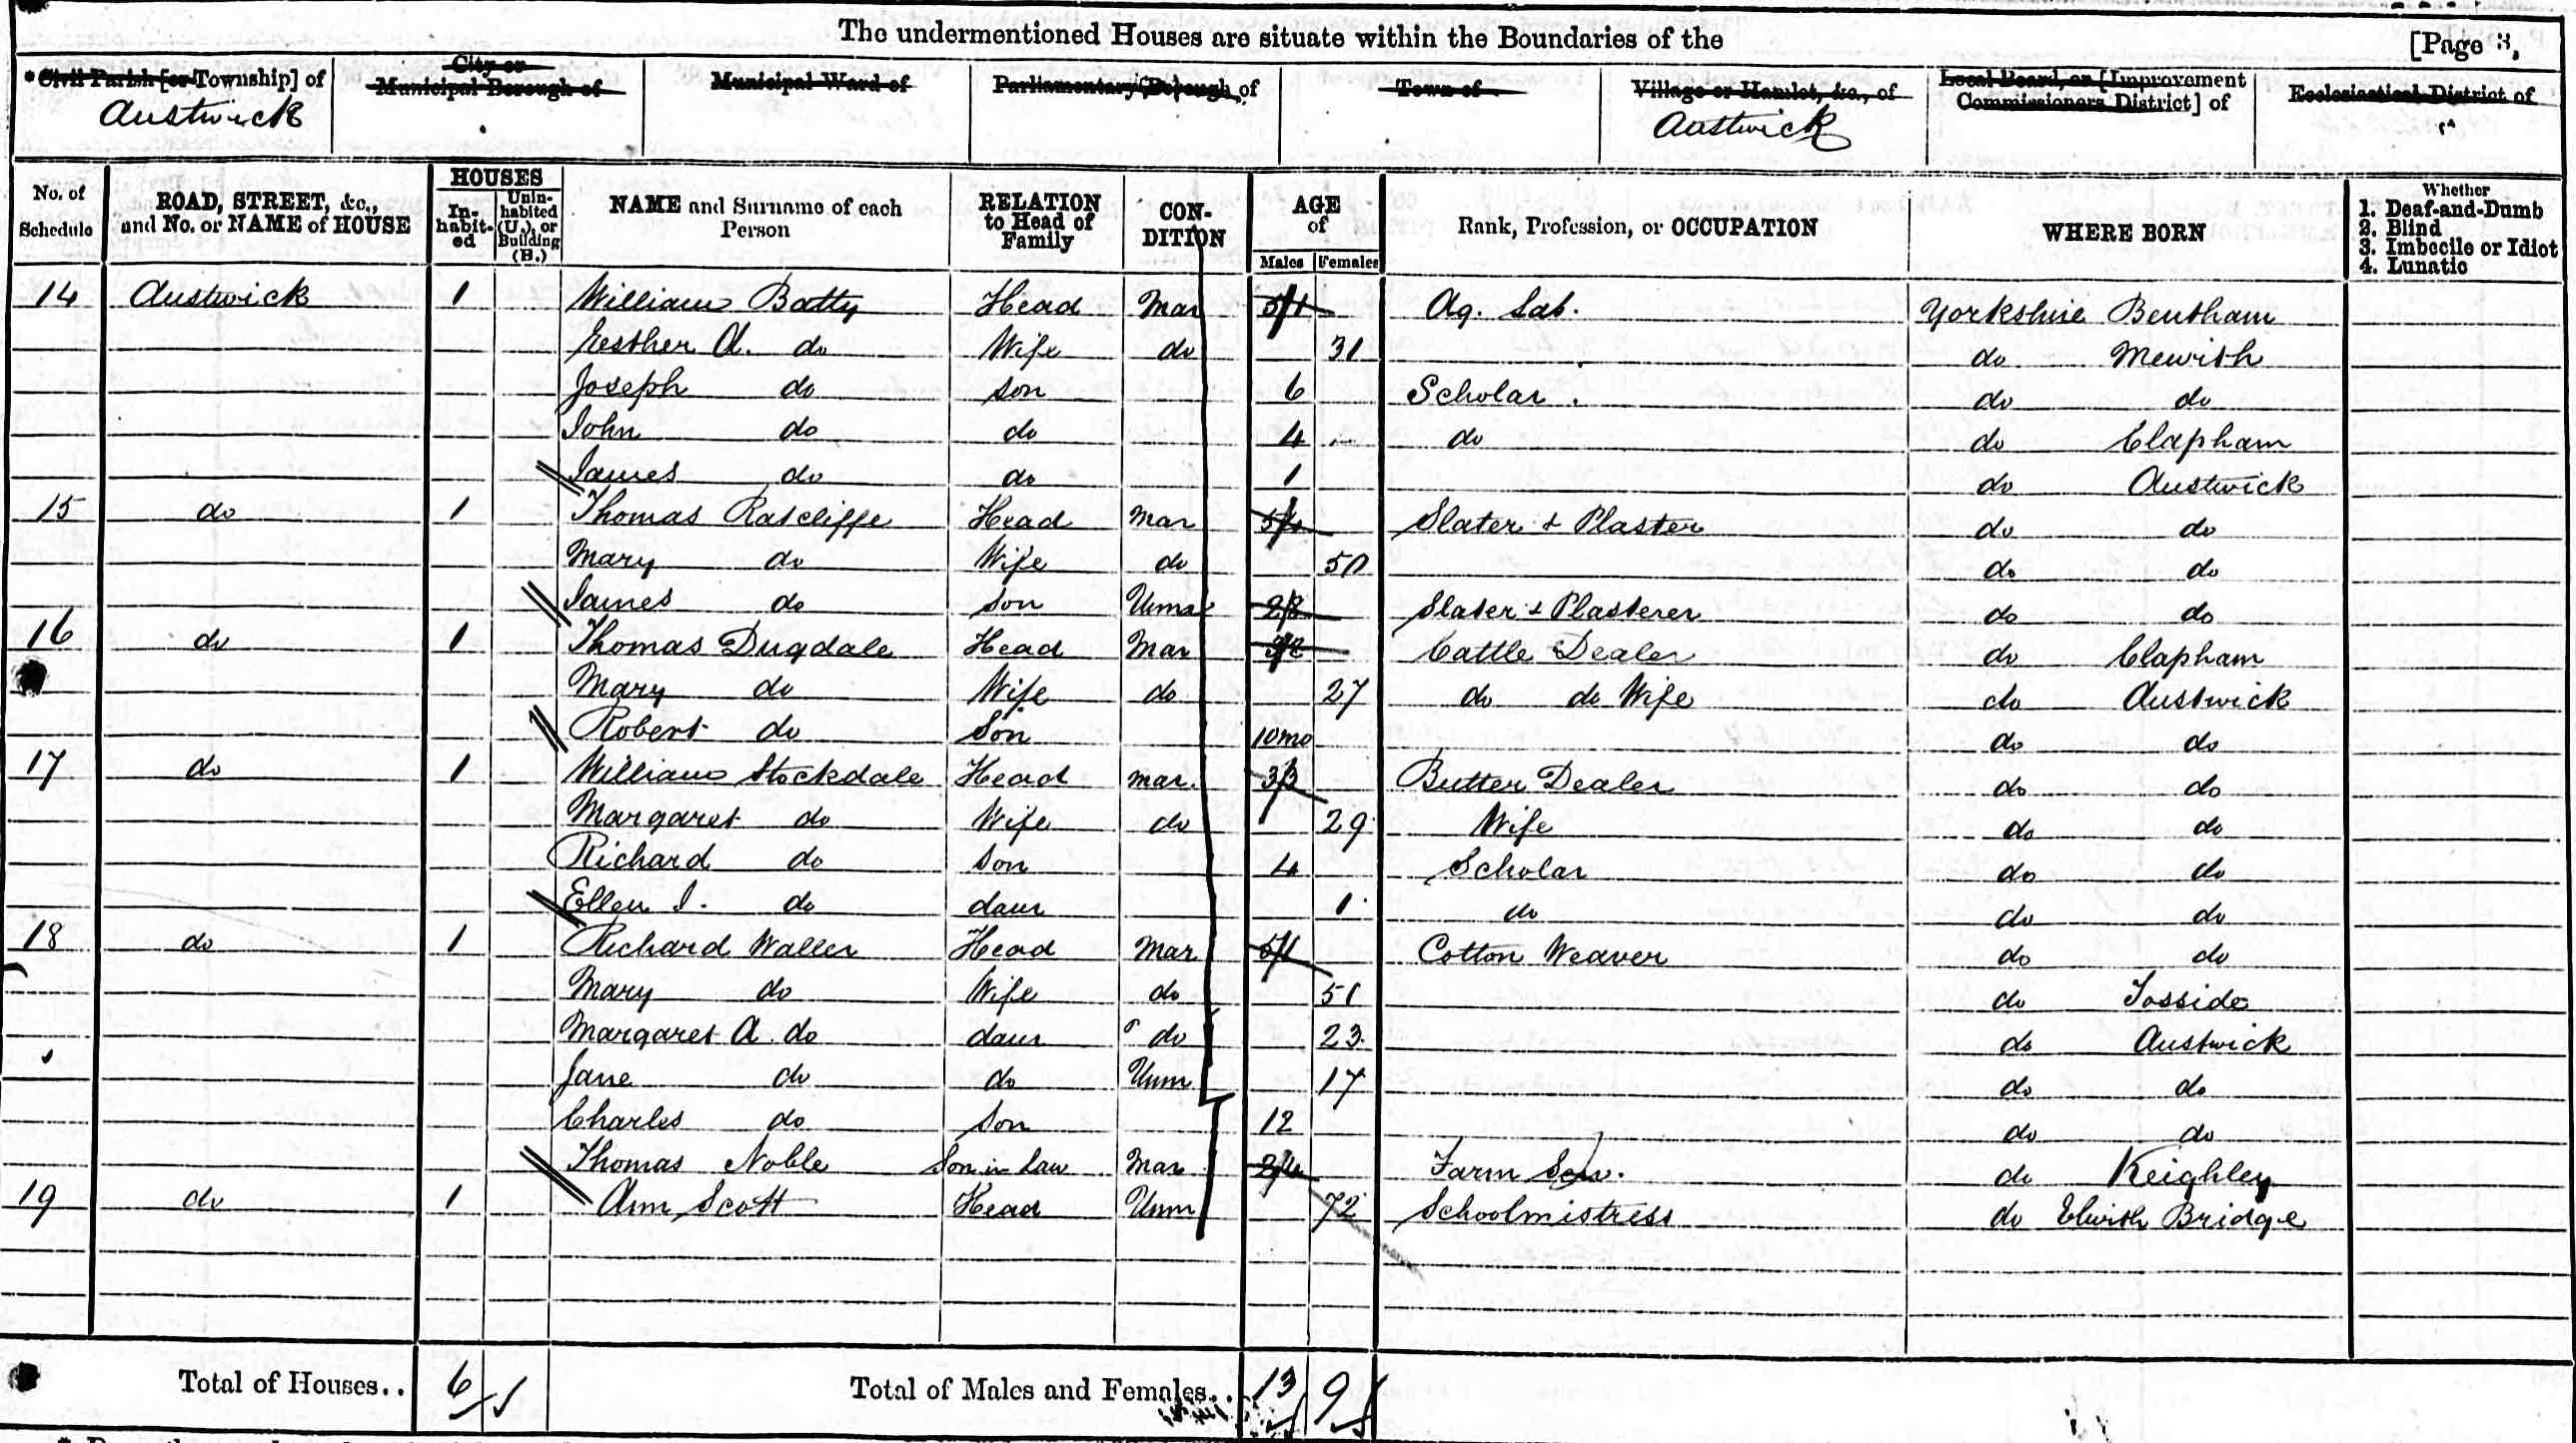 The undermentioned Houses are situate within the Boundaries of the [Page 8,
*Civil Parish [or Township] of City or Municipal Borough of Municipal Ward of Parliamentary Borough of Town of Village or Hamlet, &c., of Local Board, or [Improvement Commissioners District] of Ecclesiastical District of
Austwick Austwick
No. of Schedule ROAD, STREET, &c., and No. or NAME of HOUSE HOUSES Inhabited Uninhabited (U.), or Building (B.) NAME and Surname of each Person RELATION to Head of Family CONDITION AGE of Males Females Rank, Profession, or OCCUPATION WHERE BORN Whether 1. Deaf-and-Dumb 2. Blind 3. Imbecile or Idiot 4. Lunatic
14 Austwick 1 William Batty Head Mar 51 Ag. Lab. Yorkshire Bentham
Eesther A. do Wife do 31 do Mewith
Joseph do son 6 Scholar. do do
John do do 4 do do Clapham
James do do 1 do Austwick
15 do 1 Thomas Ratcliffe Head Mar 54 Slater & Plaster do do
Mary do Wife do 50 do do
James do son Unma 28 Slater & Plasterer do do
16 do 1 Thomas Dugdale Head Mar Cattle Dealer do Clapham
Mary do Wife do 27 do do Wife do Austwick
Robert do Son 10mo do do
17 do 1 William Stockdale Head mar. 33 Butter Dealer do do
Margaret do Wife do 29 Wife do do
Richard do son 4 Scholar do do
Ellen I. do daur 1 do do do
18 do 1 Richard Waller Head Mar 51 Cotton Weaver do do
Mary do Wife do 51 do Tosside
Margaret A. do daur do 23 do Austwick
Jane do do Unm 17 do do
Charles do Son 12 do do
Thomas Noble Son in law Mar 24 Farm Serv. do Keighley
19 do 1 Ann Scott Head Unm 72 Schoolmistress do Elwith Bridge
Total of Houses.. 6 Total of Males and Females.. 13 9